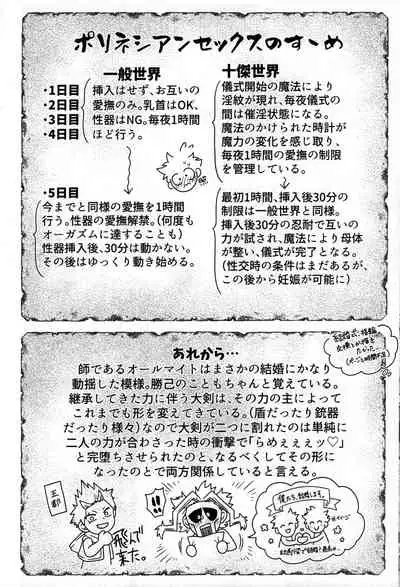 ポリネシアンセックスのすゝめ
一般世界
・1日目
・2日目
・3日目
・4日目
挿入はせず、お互いの
愛撫のみ。乳首はOK、
性器はNG。毎夜1時間
ほど行う。
・5日目
今までと同様の愛撫を1時間
行う。性器の愛撫解禁。(何度も
オーガズムに達することも)
性器挿入後、30分は動かない。
その後はゆっくり動き始める。
十傑世界
儀式開始の魔法により
淫紋が現れ、毎夜儀式の
間は催淫状態になる。
魔法のかけられた時計が
魔力の変化を感じ取り、
毎夜1時間の愛撫の制限
を管理している。
最初1時間、挿入後30分の
制限は一般世界と同様。
挿入後30分の忍耐で互いの
力が試され、魔法により母体
が整い、儀式が完了となる。
(性交時の条件はまだあるが、
この後から妊娠が可能に)
あれから…
師であるオールマイトはまさかの結婚にかなり
動揺した模様。勝己のこともちゃんと覚えている。
継承してきた力に伴う大剣は、その力の主によって
これまでも形を変えてきている。(盾だったり銃器
だったり様々)なので大剣が二つに割れたのは単純に
二人の力が合わさった時の衝撃で「らめぇぇぇッ♡」
と完堕ちさせられたのと、なるべくしてその形に
なったのとで両方関係していると言える。
王都
飛んで
来た。
!!